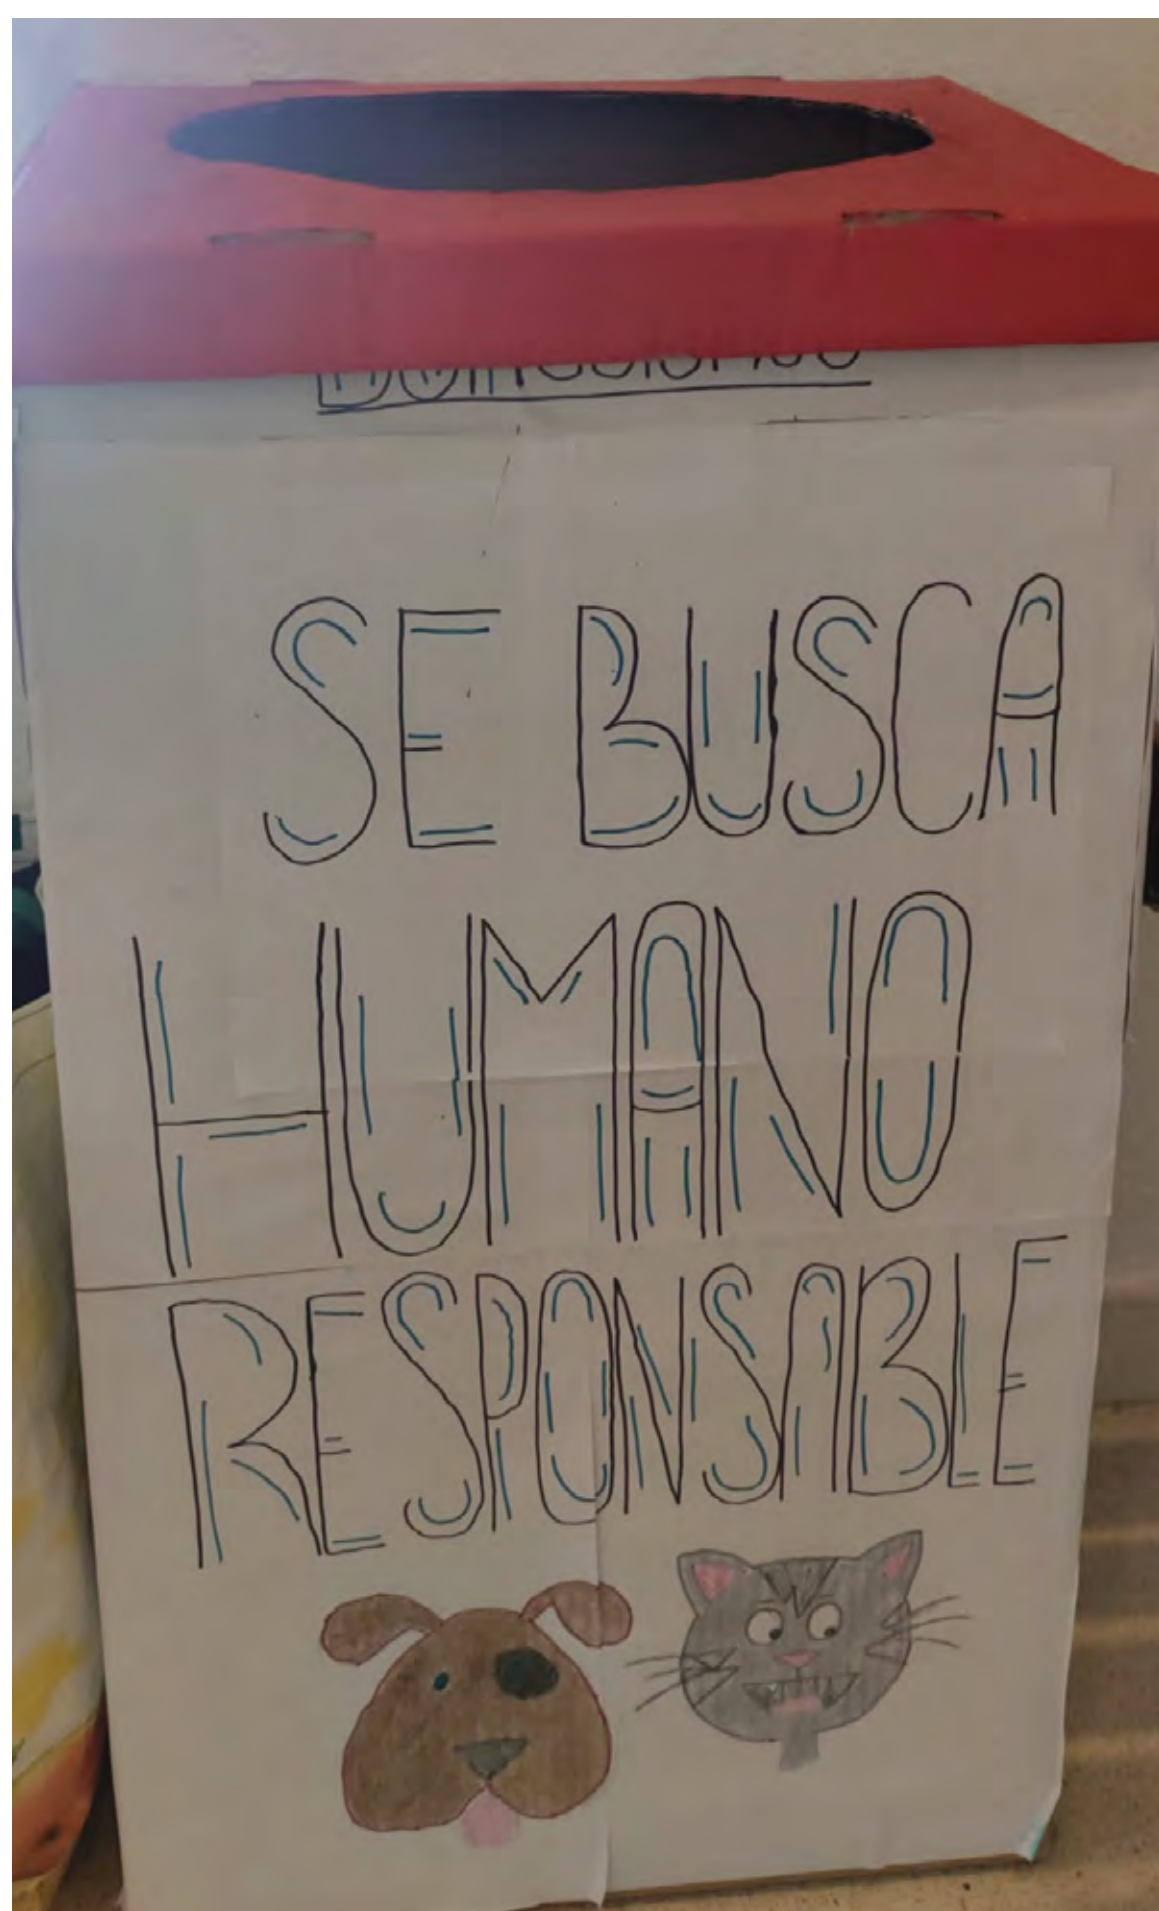 SE BUSCA
HUMANO
RESPONSABLE